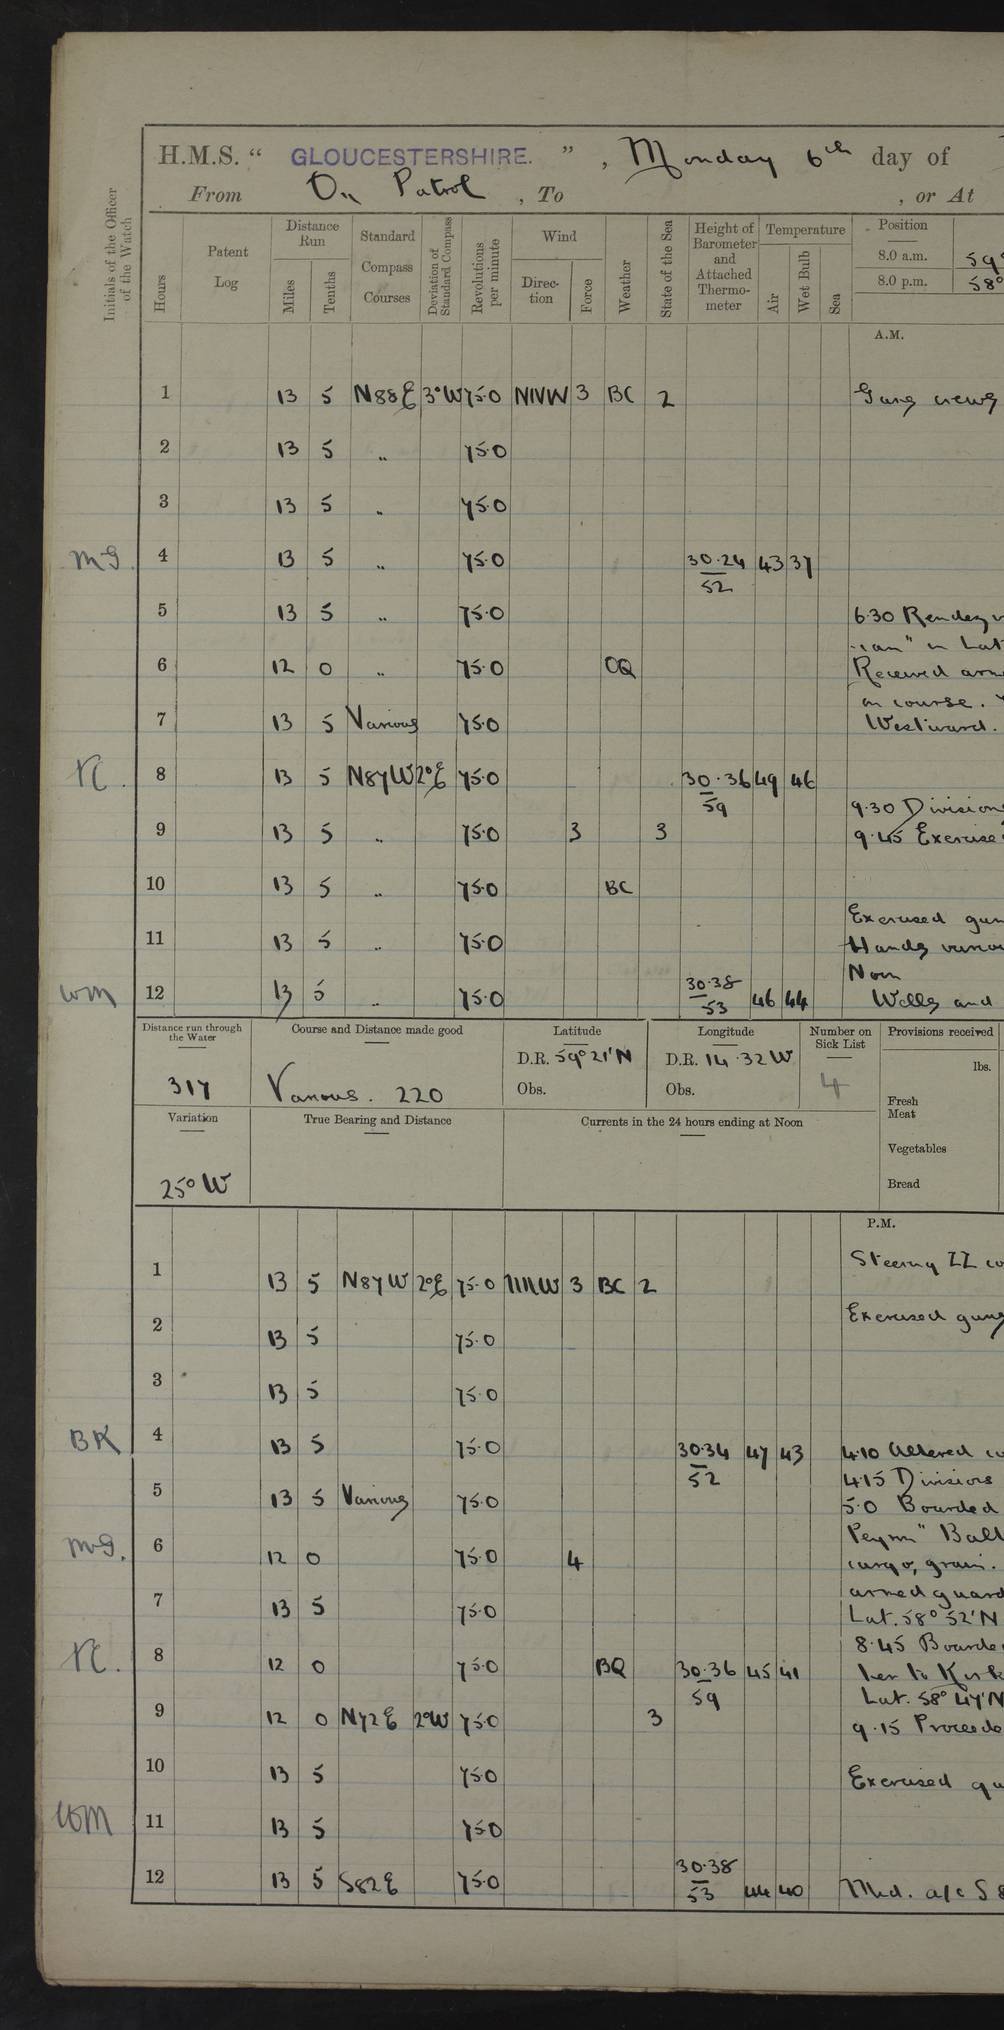 H.M.S. " GLOUCESTERSHIRE. ", Monday 6th day of
From On Patrol , To , or At
Initials of the Officer of the Watch
Hours
Patent Log
Distance Run
Miles
Tenths
Standard Compass Courses
Deviation of Standard Compass
Revolutions per minute
Wind
Direc-tion
Force
Weather
State of the Sea
Height of Barometer and Attached Thermo-meter
Temperature
Air
Wet Bulb
Sea
Position
8.0 a.m. 59°
8.0 p.m. 58°
A.M.
1 13 5 N88E 3°W 75.0 NNW 3 BC 2
2 13 5 " 75.0
3 13 5 " 75.0
MG. 4 13 5 " 75.0 30.24 43 37
52
5 13 5 " 75.0 6.30
"ian" in Lat
6 12 0 " 75.0 OQ Received
on course.
7 13 5 Various 75.0 Westward.
8 13 5 N87W 2°E 75.0 30.36 49 46
59
9.30 Divisions
9 13 5 " 75.0 3 3 9.45 Exercise
10 13 5 " 75.0 BC
Exercised gun
11 13 5 " 75.0 Hands
Noon
WM 12 13 5 " 75.0 30.38 46 44 and
53
Distance run through the Water
317
Course and Distance made good
Various. 220
Latitude
D.R. 59° 21'N
Obs.
Longitude
D.R. 14.32W
Obs.
Number on Sick List
4
Provisions received
lbs.
Fresh Meat
Vegetables
Bread
Variation
25° W
True Bearing and Distance
Currents in the 24 hours ending at Noon
P.M.
Steering ZZ co
1 13 5 N87W 2°E 75.0 NNW 3 BC 2
Exercised guns
2 13 5 75.0
3 13 5 75.0
BK 4 13 5 75.0 30.34 47 43 4.10 Altered co
52
4.15 Divisions
5 13 5 Various 75.0 5.0 Boarded
MG. 6 12 0 75.0 4
cargo, grain.
armed guard
7 13 5 75.0 Lat. 58° 52'N
8.45 Boarde
8 12 0 75.0 BQ 30.36 45 41 her to Kirk
59
Lat. 58° 47'N
9 12 0 N72E 2°W 75.0 3 9.15 Proceede
10 13 5 75.0 Exercised gu
WM 11 13 5 75.0
12 13 5 S82E 75.0 30.38 44 40 Mid. a/c S 8
53